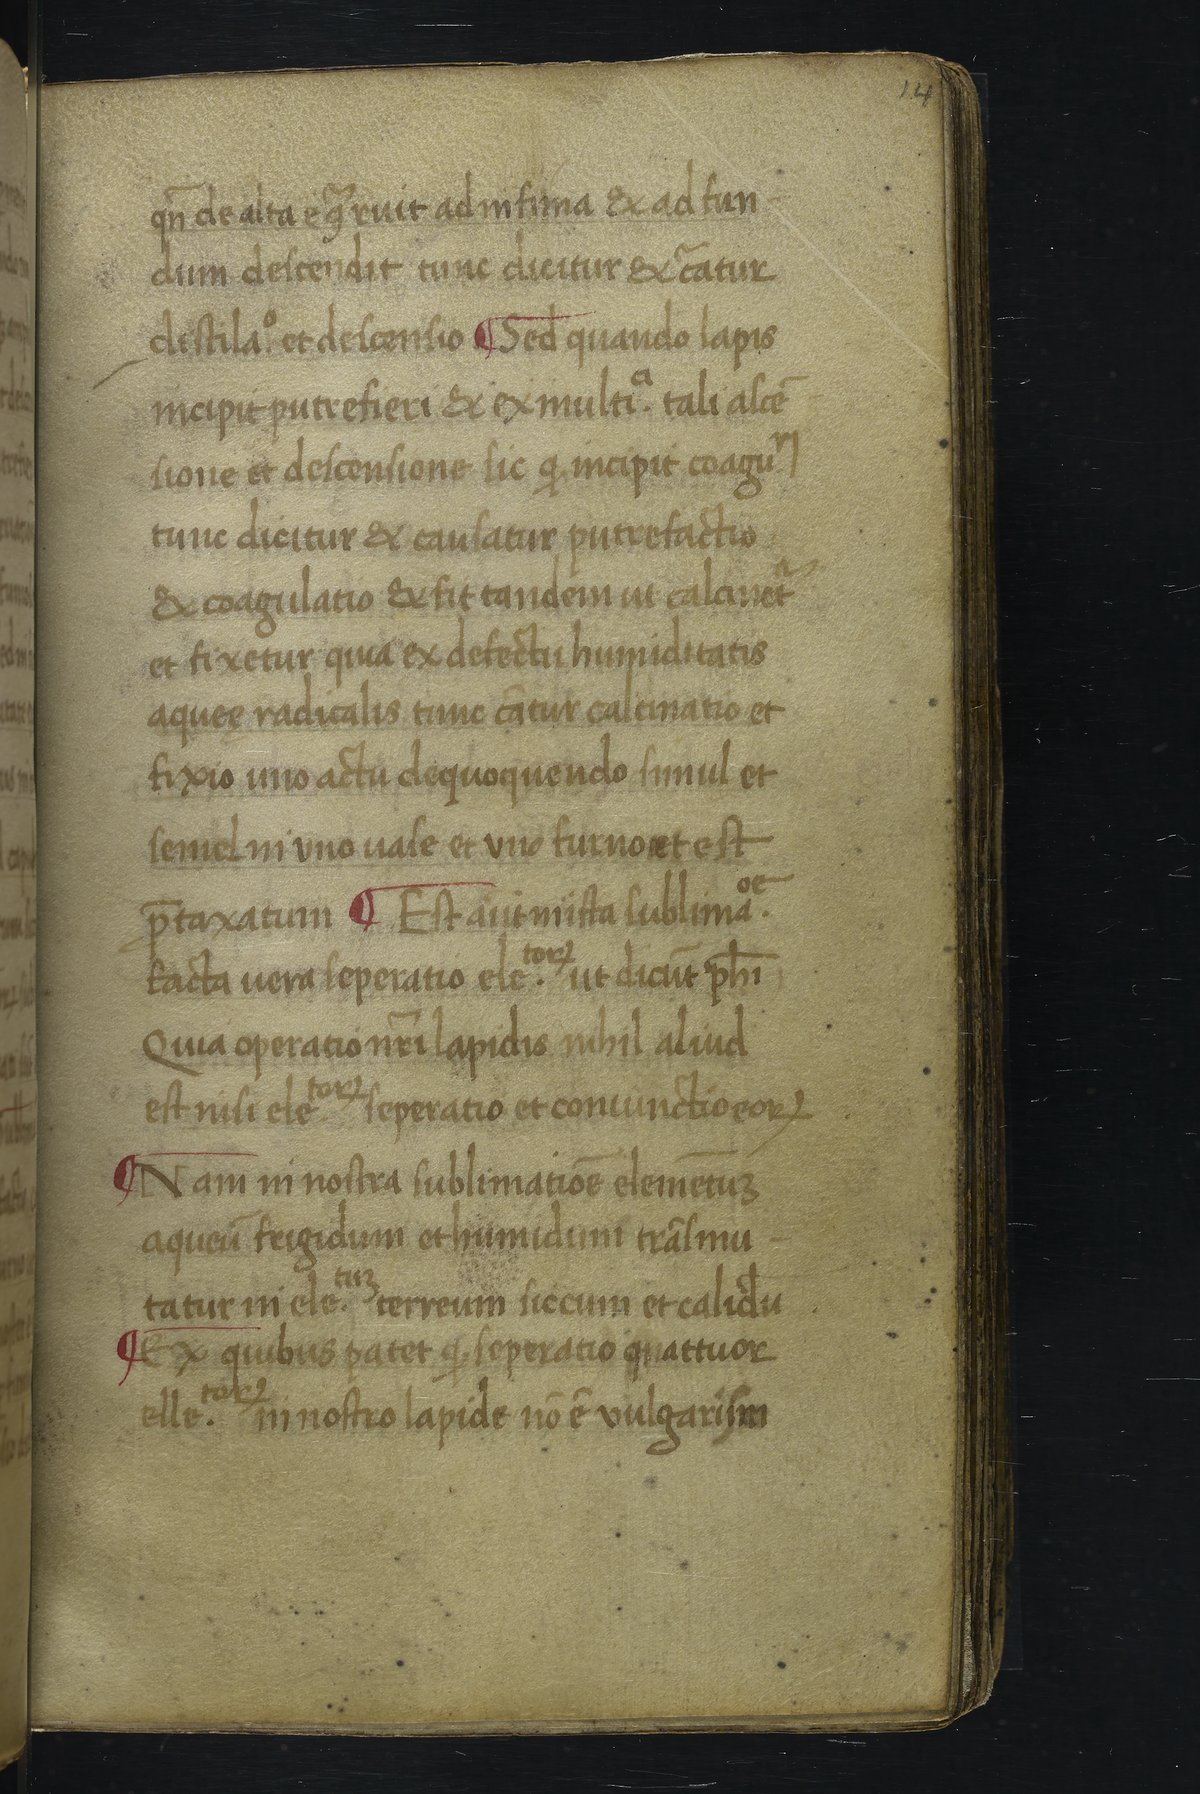 14
qñ de alta ruit ad infima & ad fun-
dum descendit tunc dicitur & c̃atur
distila.º et descensio ¶ Sed quando lapis
incipit putrefieri & ex multi.ᵃ tali ascẽ
sione et descensione sic ꝙ incipit coaguʳⁱ
tunc dicitur & causatur putrefactio
& coagulatio & fit tandem ut calcinet᷑
et fixetur quia ex defectu humiditatis
aqueę radicalis tunc cãtur calcinatio et
fixio uno actu dequoquendo simul et
semel in vno uase et vno furno et est
p̃taxatum ¶ Est aũt in ista sublima.ᵒᵉ̃
facta uera seperatio ele.ᵗᵒʳꝝ ut dicũt ph̃i
Quia operatio nr̃i lapidis nihil aliud
est nisi ele.ᵗᵒʳꝝ seperatio et coniunctio eorꝝ
¶ Nam in nostra sublimatiõe elemẽtuꝫ
aqueũ frigidum et humidum trãsmu-
tatur in ele.ᵗᵘꝫ terreum siccum et calidũ
¶ Ex quibus patet ꝙ seperatio quattuor
elle.ᵗᵒʳꝝ in nostro lapide nõ ẽ vulgaris